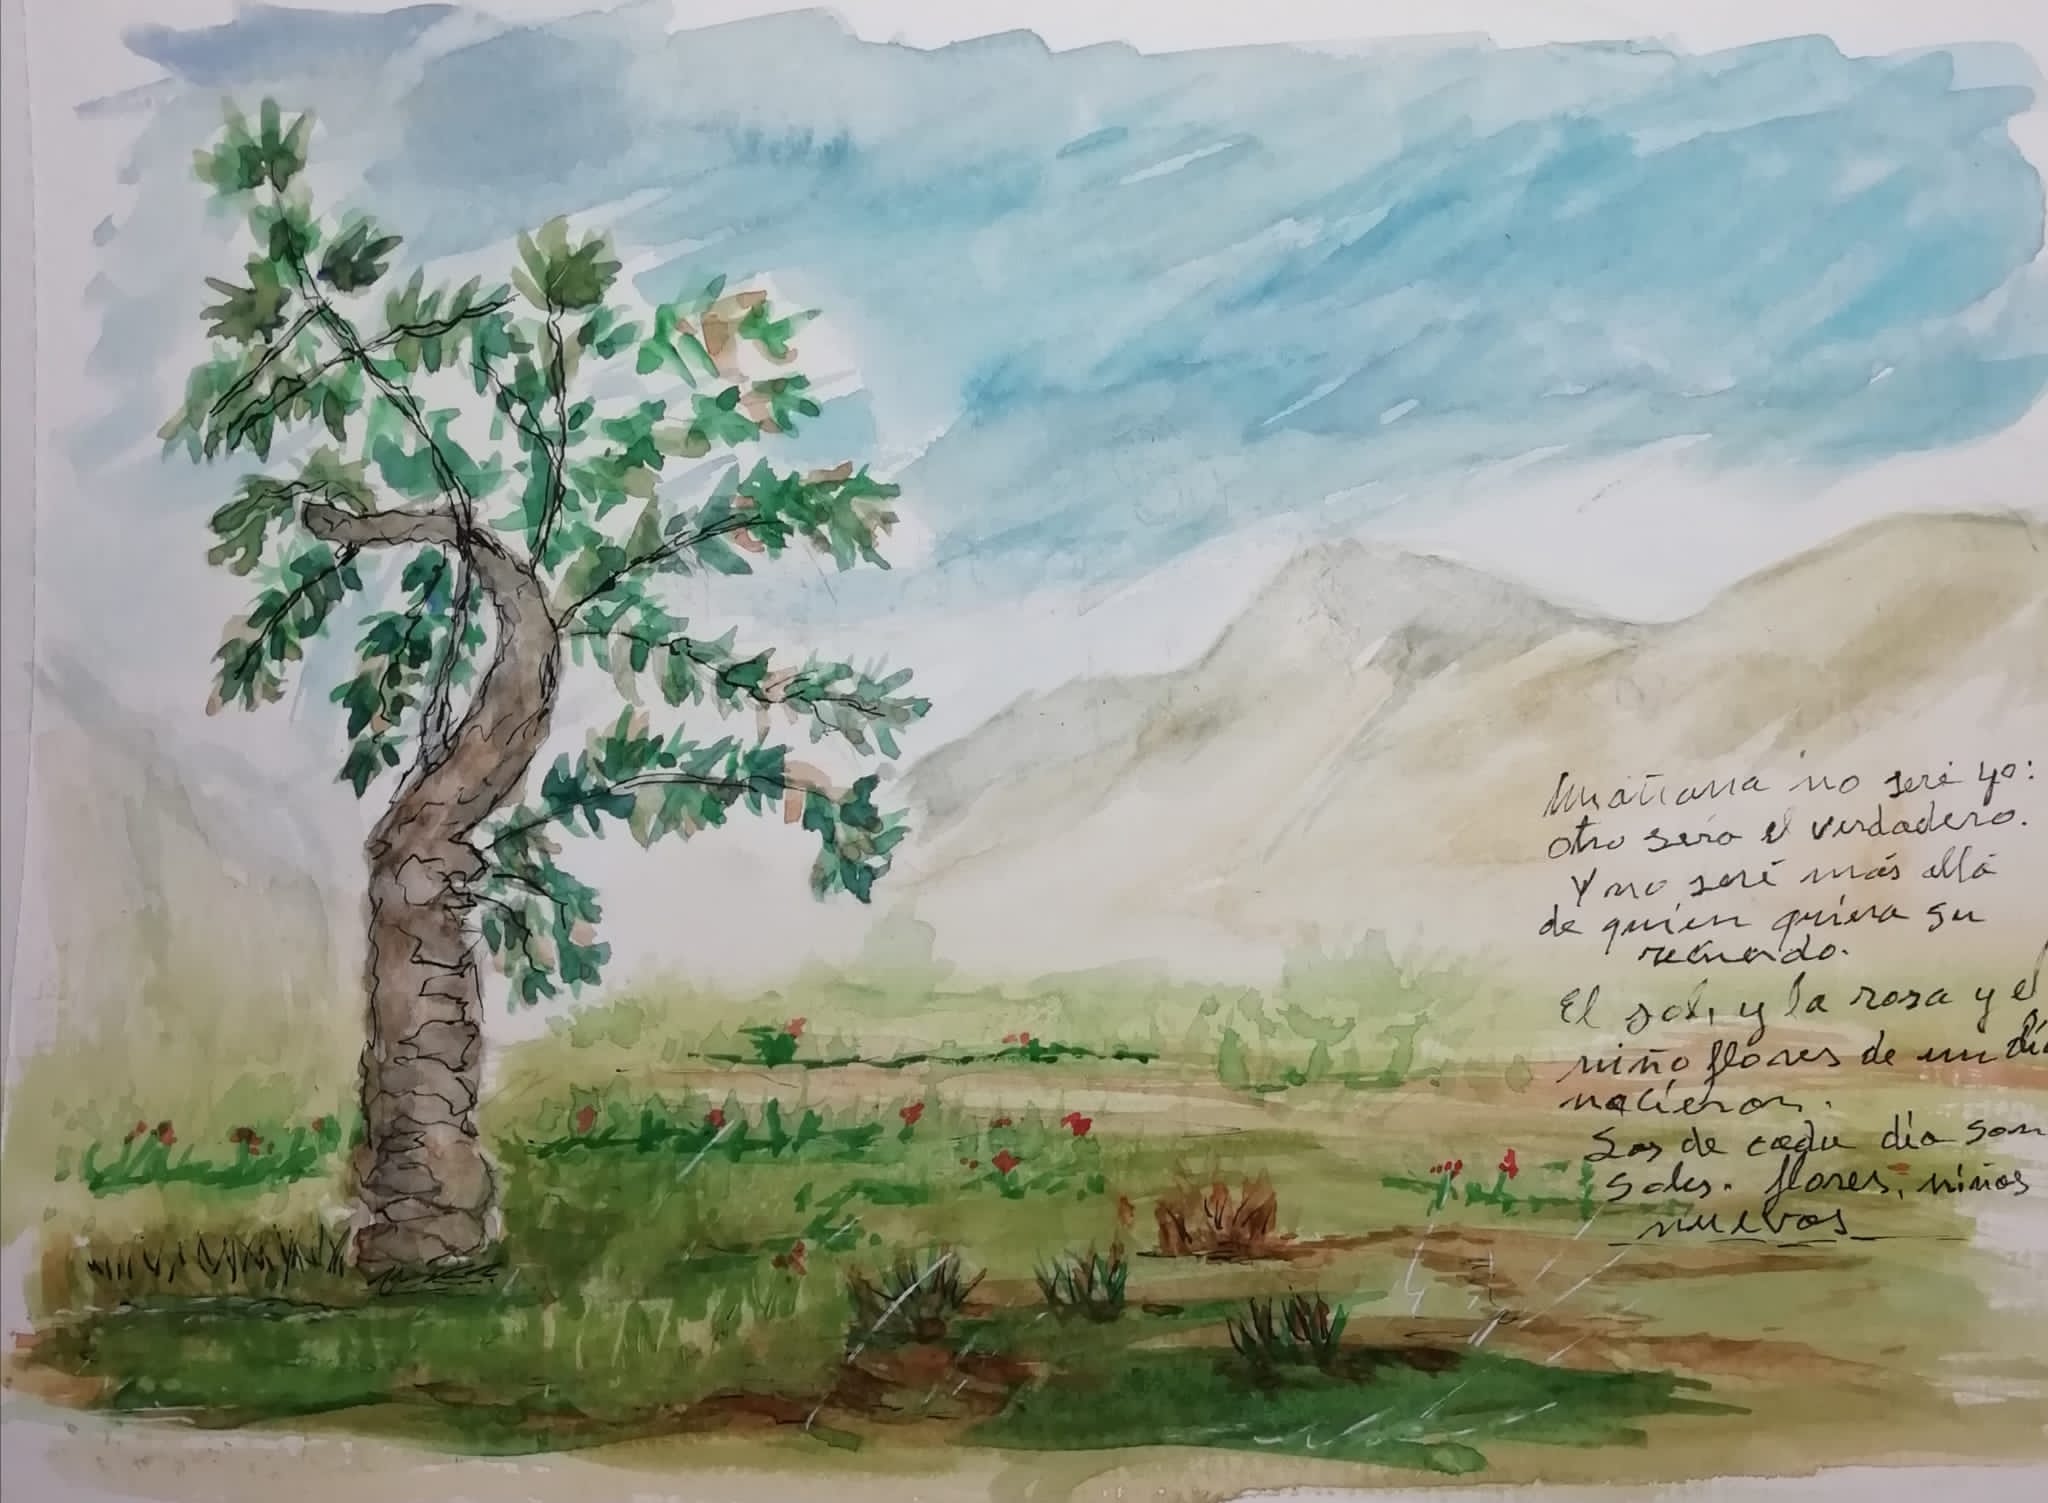 Mañana no seré yo:
otro será el verdadero.
Y no seré más allá
de quien quiera su
recuerdo.
El sol, y la rosa y el
niño flores de un día
nacieron.
Los de cada día son
soles. flores, niños
nuevos